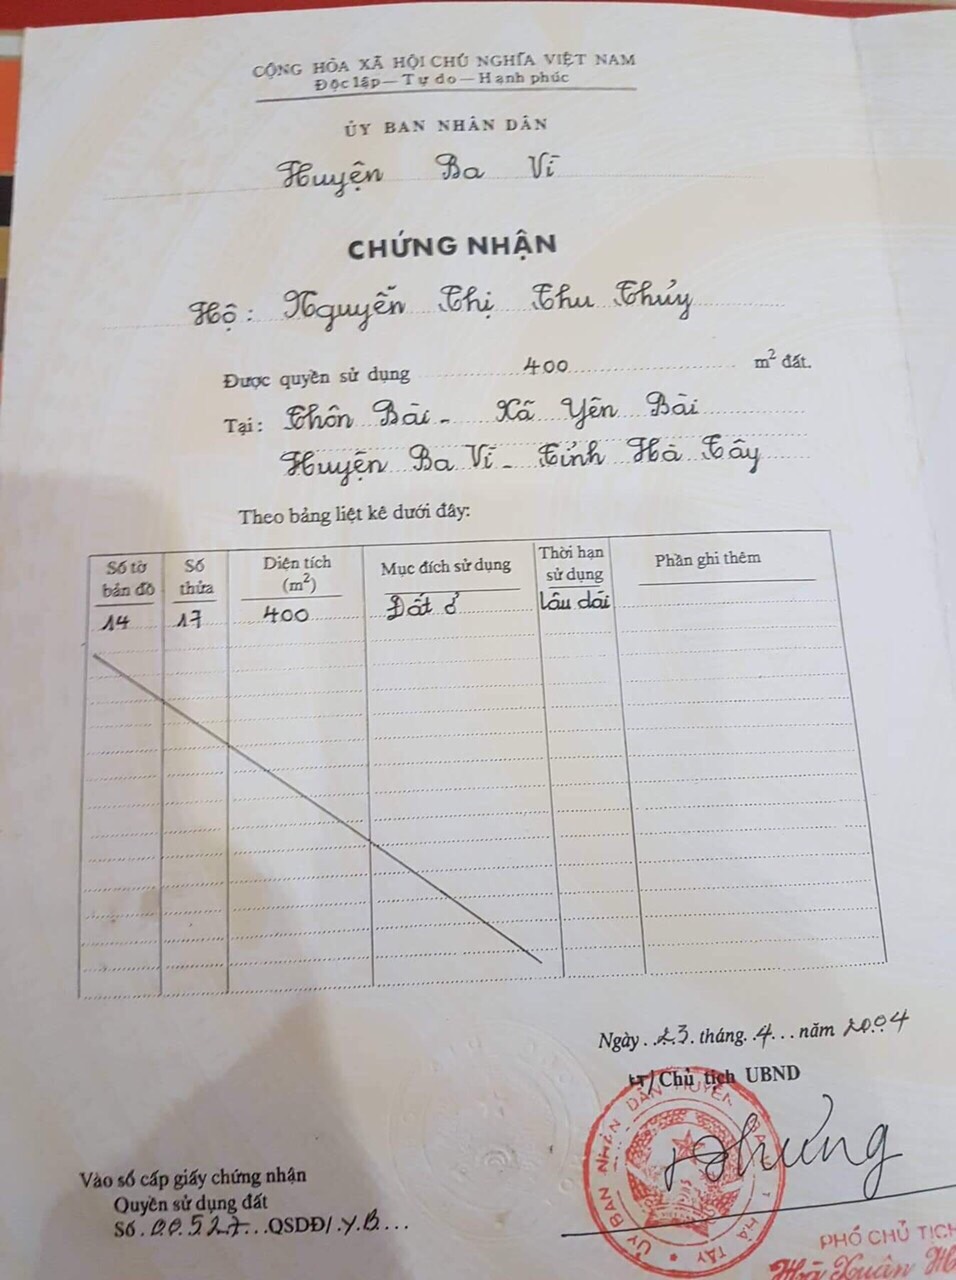 CỘNG HÒA XÃ HỘI CHỦ NGHĨA VIỆT NAM
Độc lập — Tự do — Hạnh phúc
ỦY BAN NHÂN DÂN
Huyện Ba Vì
CHỨNG NHẬN
Hộ: Nguyễn Thị Thu Thủy
Được quyền sử dụng 400 m² đất.
Tại: Thôn Bài - Xã Yên Bài
Huyện Ba Vì - Tỉnh Hà Tây
Theo bảng liệt kê dưới đây:
Số tờ bản đồ Số thửa Diện tích (m²) Mục đích sử dụng Thời hạn sử dụng Phần ghi thêm
14 17 400 Đất ở lâu dài
Ngày 23 tháng 4 năm 2004
KT/Chủ tịch UBND
ỦY BAN NHÂN DÂN HUYỆN BA VÌ T. HÀ TÂY
PHÓ CHỦ TỊCH
Hà Xuân
Vào sổ cấp giấy chứng nhận
Quyền sử dụng đất
Số 00527 QSDĐ/ Y.B